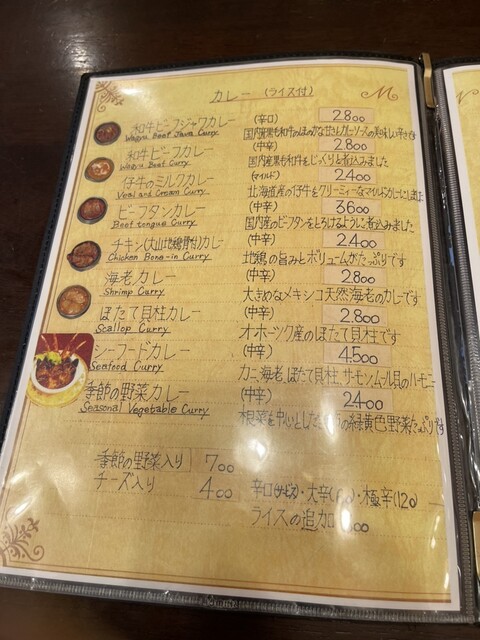 カレー (ライス付)
和牛ビーフジャワカレー (辛口) 2.800
Wagyu Beef Java Curry 国内産黒毛和牛の
和牛ビーフカレー (中辛) 2.800
Wagyu Beef Curry 国内産黒毛和牛をじっくりと煮込みました
仔牛のミルクカレー (マイルド) 2.400
Veal and Cream Curry 北海道産の仔牛をクリーミーなマイルドカレーにしました
ビーフタンカレー (中辛) 3.600
Beef tongue Curry 国内産のビーフタンをとろけるように煮込みました
チキン(大山地鶏骨付)カレー (中辛) 2.400
Chicken Bone-in Curry 地鶏の旨みとボリュームがたっぷりです
海老カレー (中辛) 2.800
Shrimp Curry 大きめなメキシコ天然海老のカレーです
ほたて貝柱カレー (中辛) 2.800
Scallop Curry オホーツク産のほたて貝柱です
シーフードカレー (中辛) 4.500
Seafood Curry カニ、海老、ほたて貝柱、サーモン、ムール貝のハーモニー
季節の野菜カレー (中辛) 2.400
Seasonal Vegetable Curry 根菜を中心とした の緑黄色野菜たっぷりです
季節の野菜入り 700
チーズ入り 400 辛口(サービス)・大辛( )・極辛(120)
ライスの追加